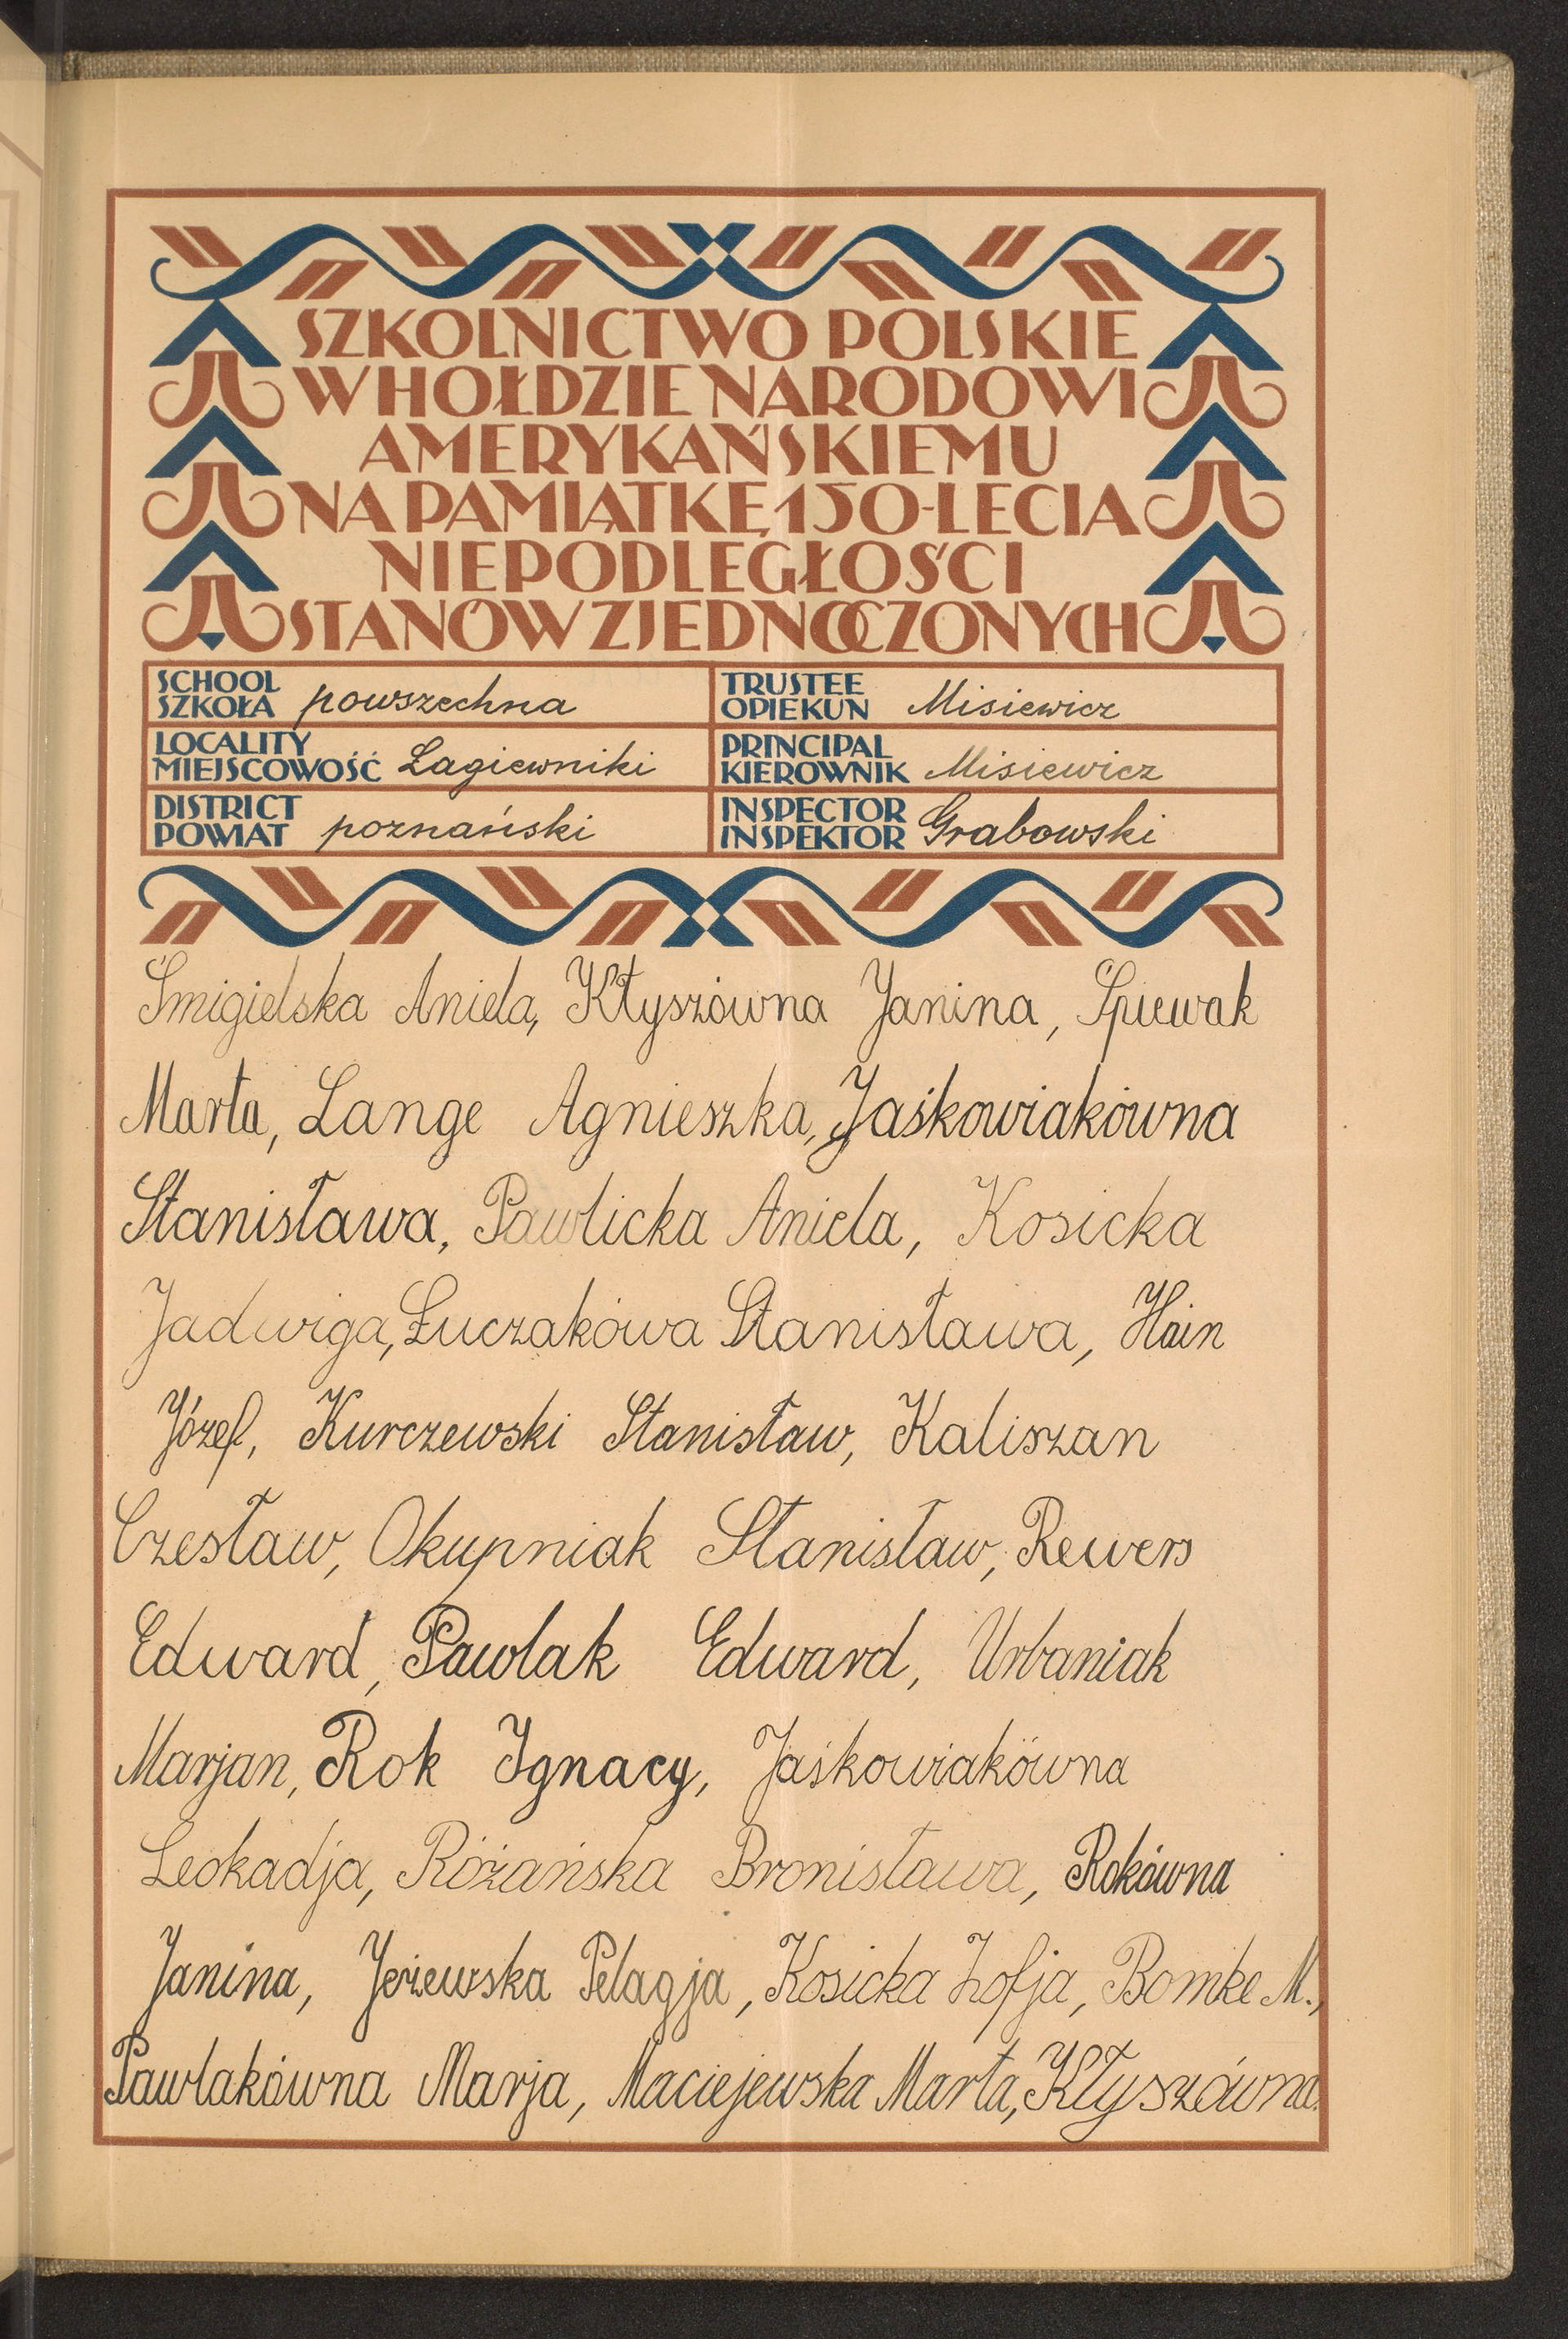 SZKOLNICTWO POLSKIE
W HOŁDZIE NARODOWI
AMERYKAŃSKIEMU
NA PAMIĄTKĘ 150-LECIA
NIEPODLEGŁOŚCI
STANÓW ZJEDNOCZONYCH
SCHOOL
SZKOŁA powszechna
TRUSTEE
OPIEKUN Misiewicz
LOCALITY
MIEJSCOWOŚĆ Łagiewniki
PRINCIPAL
KIEROWNIK Misiewicz
DISTRICT
POWIAT poznański
INSPECTOR
INSPEKTOR Grabowski
Śmigielska Aniela, Kłyszówna Janina, Śpiewak
Marta, Lange Agnieszka, Jaśkowiakówna
Stanisława, Pawlicka Aniela, Kosicka
Jadwiga, Łuczakówa Stanisława, Hain
Józef, Kurczewski Stanisław, Kaliszan
Czesław, Okupniak Stanisław, Rewers
Edward, Pawlak Edward, Urbaniak
Marjan, Rok Ignacy, Jaśkowiakówna
Leokadja, Różańska Bronisława, Rokówna
Janina, Jeżewska Pelagja, Kosicka Zofja, Bomke M.,
Pawlakówna Marja, Maciejewska Marta, Kłyszówna